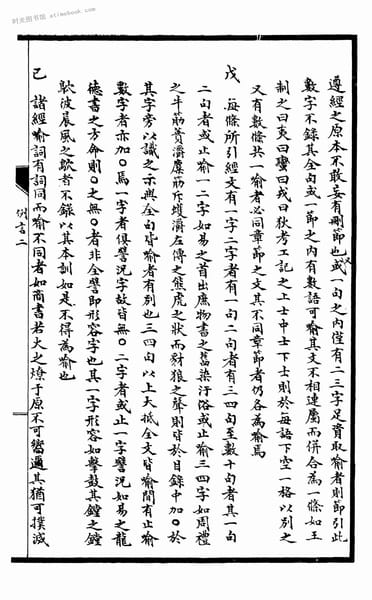 时光图书馆 etimebook.com
遵經之原本不敢妄有刪節也或一句之內僅有二三字足資取喻者則節引此
數字不錄其全句或一節之內有數語可喻其文不相連屬而併合為一條如王
制之曰夷曰蠻曰戎曰狄考工記之上士中士下士則於每語下空一格以別之
又有數條共一喻者必同章節之文其不同章節者仍各為喻焉
戊 每條所引經文有一字二字者有一句二句者有三四句至數十句者其一句
二句者或止喻一二字如易之首出庶物書之舊染汙俗或止喻三四字如周禮
之牛筋蕡灂麋筋斥蠖灂左傳之熊虎之狀而豺狼之聲則皆於目錄中加○於
其字旁以識之示與全句皆喻者有別也三四句以上大抵全文皆喻間有止喻
數字者亦加○焉一字者俱譬況字故皆無○二字者或止一字譬況如易之龍
德書之方命則○之無○者非全譬即形容字也其一字形容如擊鼓其鏜鏜
鴥彼晨風之鴥者不錄以其本訓如是不得為喻也
己 諸經喻詞有詞同而喻不同者如商書若火之燎于原不可嚮邇其猶可撲滅
例言二